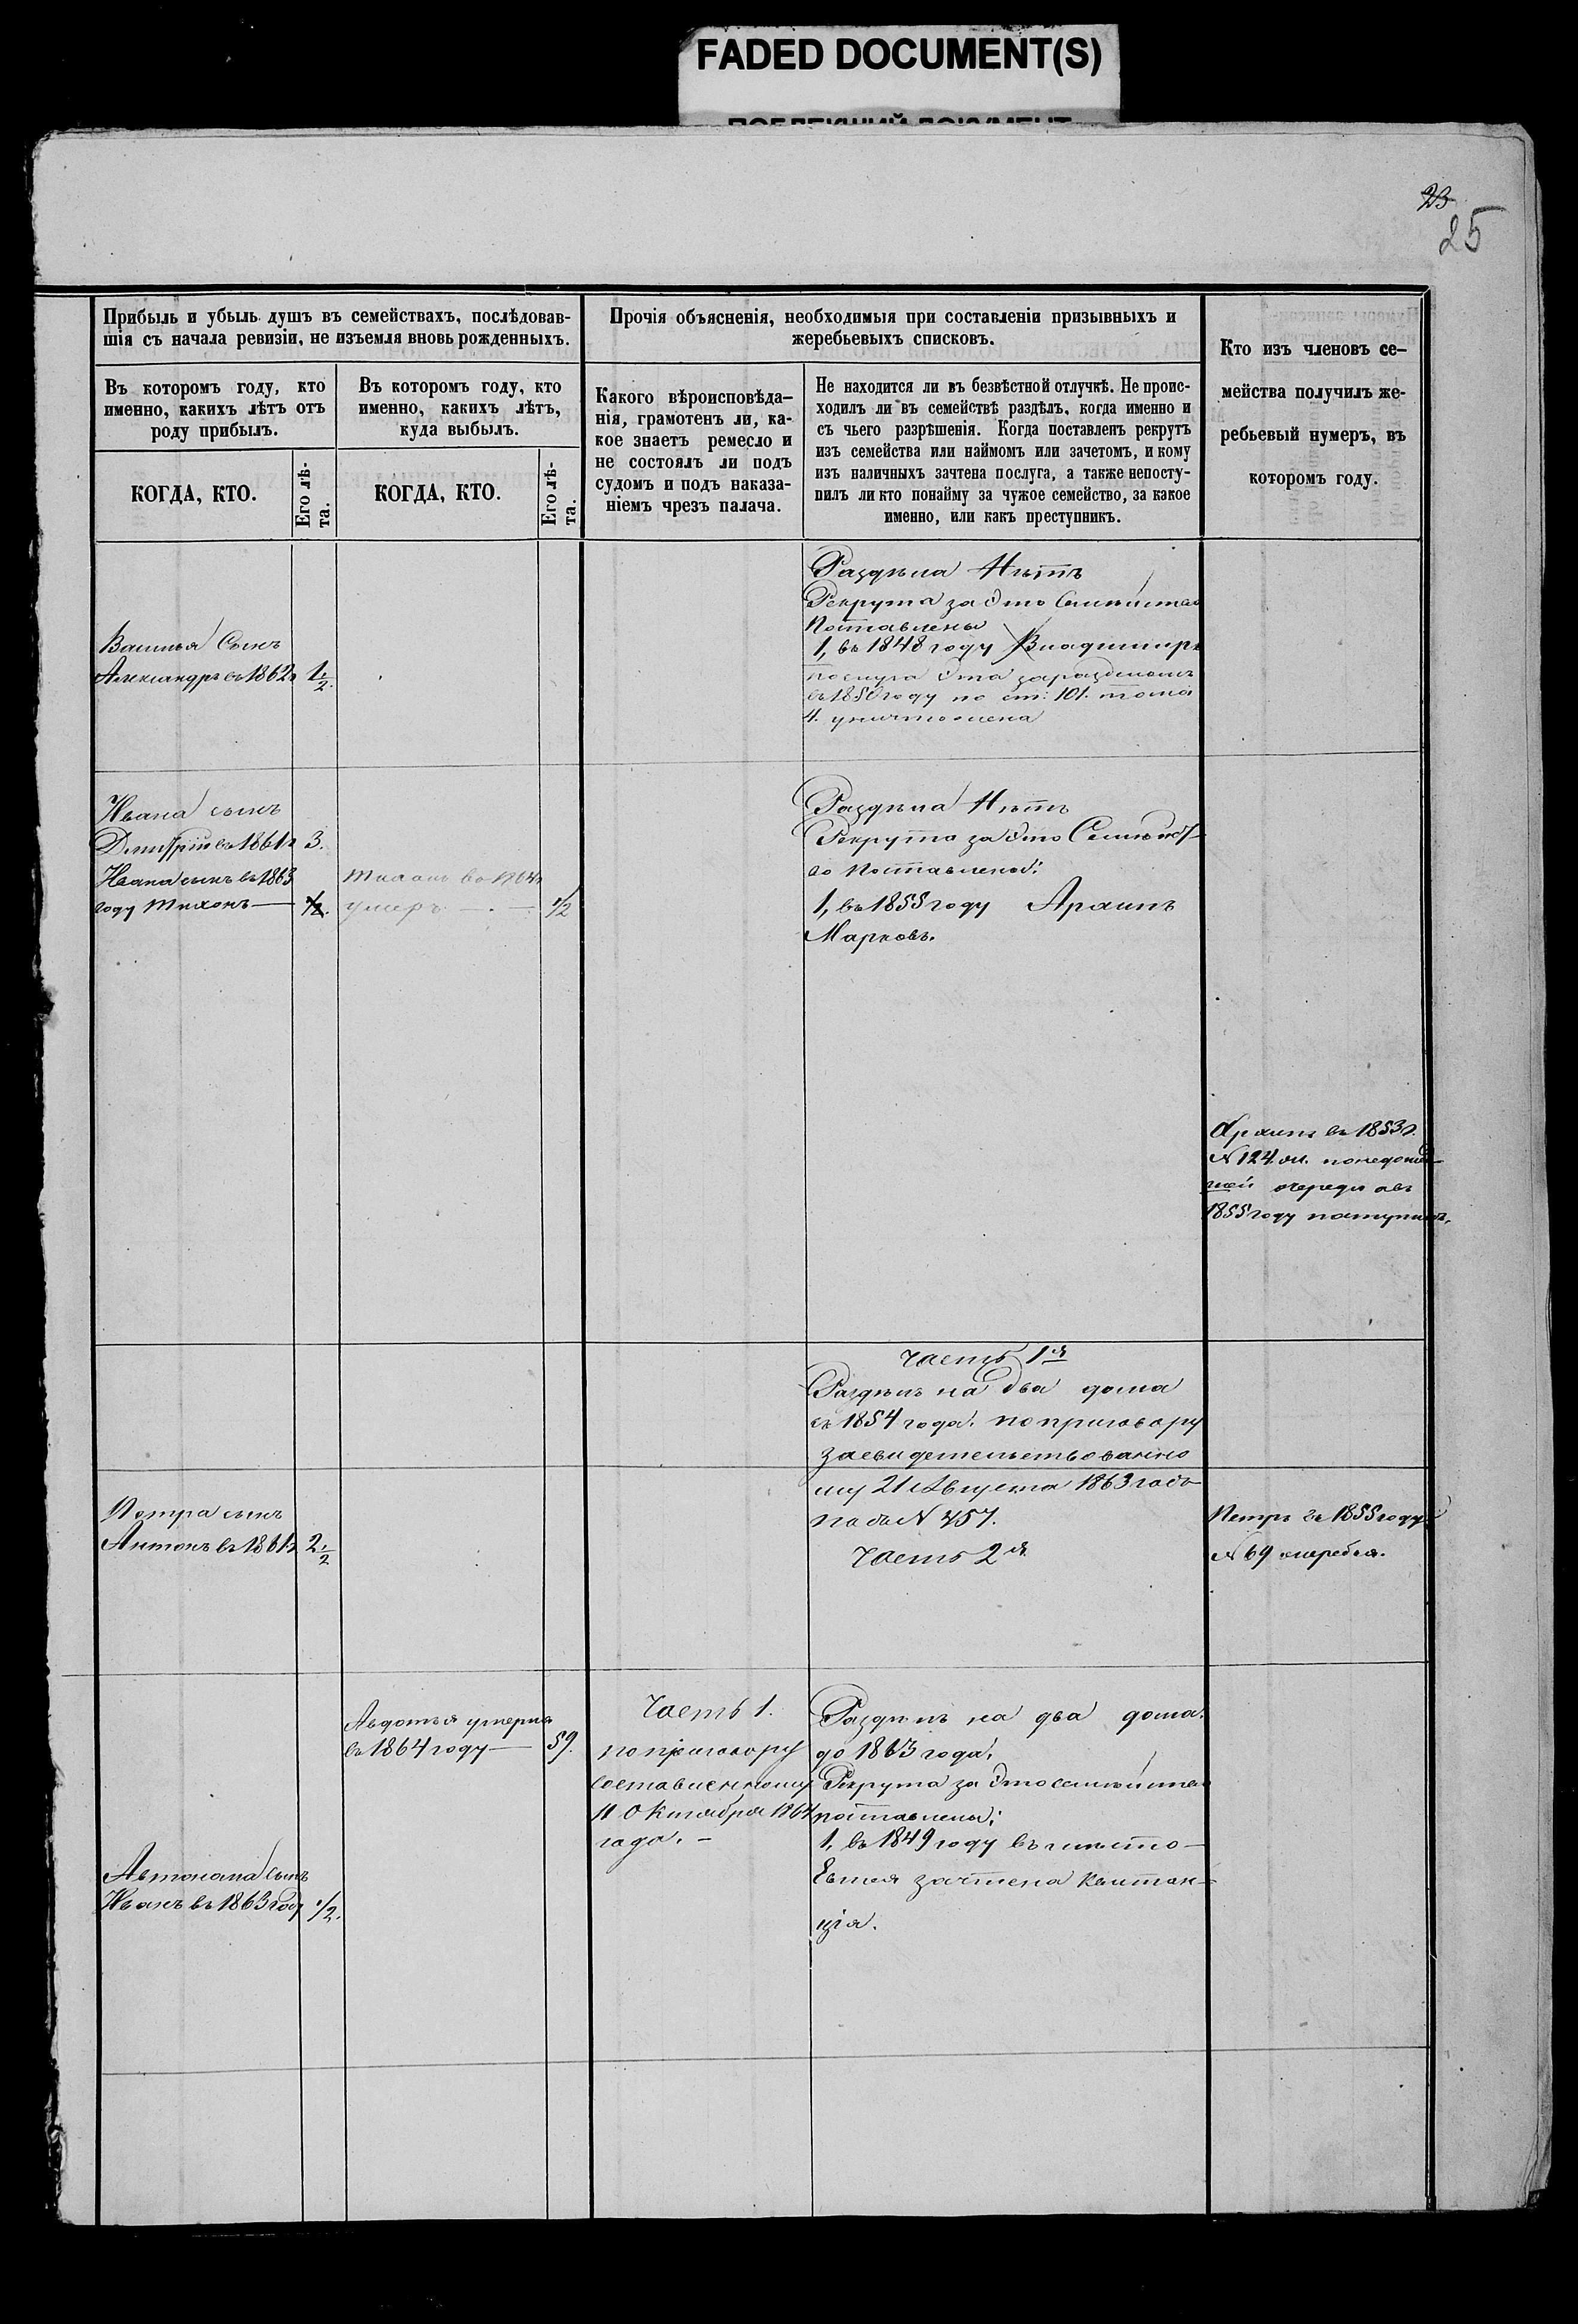 FADED DOCUMENT(S)
23
25
Прибыль и убыль душъ въ семействахъ, послѣдовав-
шія съ начала ревизіи, не изъемля вновь рожденныхъ.
Прочія объясненія, необходимыя при составленіи призывныхъ и
жеребьевыхъ списковъ.
Кто изъ членовъ се-
мейства получилъ же-
ребьевый нумеръ, въ
которомъ году.
Въ которомъ году, кто
именно, какихъ лѣтъ отъ
роду прибылъ.
Въ которомъ году, кто
именно, какихъ лѣтъ,
куда выбылъ.
Какого вѣроисповѣда-
нія, грамотенъ ли, ка-
кое знаетъ ремесло и
не состоялъ ли подъ
судомъ и подъ наказа-
ніемъ чрезъ палача.
Не находится ли въ безвѣстной отлучкѣ. Не проис-
ходилъ ли въ семействѣ раздѣлъ, когда именно и
съ чьего разрѣшенія. Когда поставленъ рекрутъ
изъ семейства или наймомъ или зачетомъ, и кому
изъ наличныхъ зачтена послуга, а также непосту-
пилъ ли кто понайму за чужое семейство, за какое
именно, или какъ преступникъ.
КОГДА, КТО.
Его лѣ-
та.
КОГДА, КТО.
Его лѣ-
та.
Василья Сынъ
Александръ въ 1862г 1/2.
Раздѣла Нѣтъ
Рекрута за Это Семѣйство
Поставлены
1, въ 1848 году Владимиръ
послуга Эта за раздѣломъ
въ 1850 году по ст: 101. тома
4. уничтожена
Ивана сынъ
Дмитрій въ 1861г 3.
Ивана сынъ въ 1863
году Тихонъ — 1/2.
Тихонъ въ 1864г
умеръ — 1/2
Раздѣла Нѣтъ
Рекрута за Это Семѣйст-
во Поставлены:
1, въ 1855 году Архипъ
Марковъ.
Архипъ въ 1853г.
N 124.
очереди а въ
1855 году поступилъ.
Часть 1я
Раздѣлъ на два дома
съ 1854 года. по приговору
засвидетельствованно
му 21 Августа 1863 года
подъ N 457.
Часть 2я
Петра сынъ
Антонъ въ 1861г 2 1/2
Петръ въ 1855 году
N 69 жеребья.
Авдотья умерла
въ 1864 году — 59.
Часть 1.
по приговору
составленному
11 Октября 1864
года. –
Раздѣлъ на два дома.
до 1863 года.
Рекрута за Это семѣйство
поставлены:
1, въ 1849 году въ мѣсто
зачтена Квитан-
ція.
Автонома сынъ
Иванъ въ 1863 году 1/2.